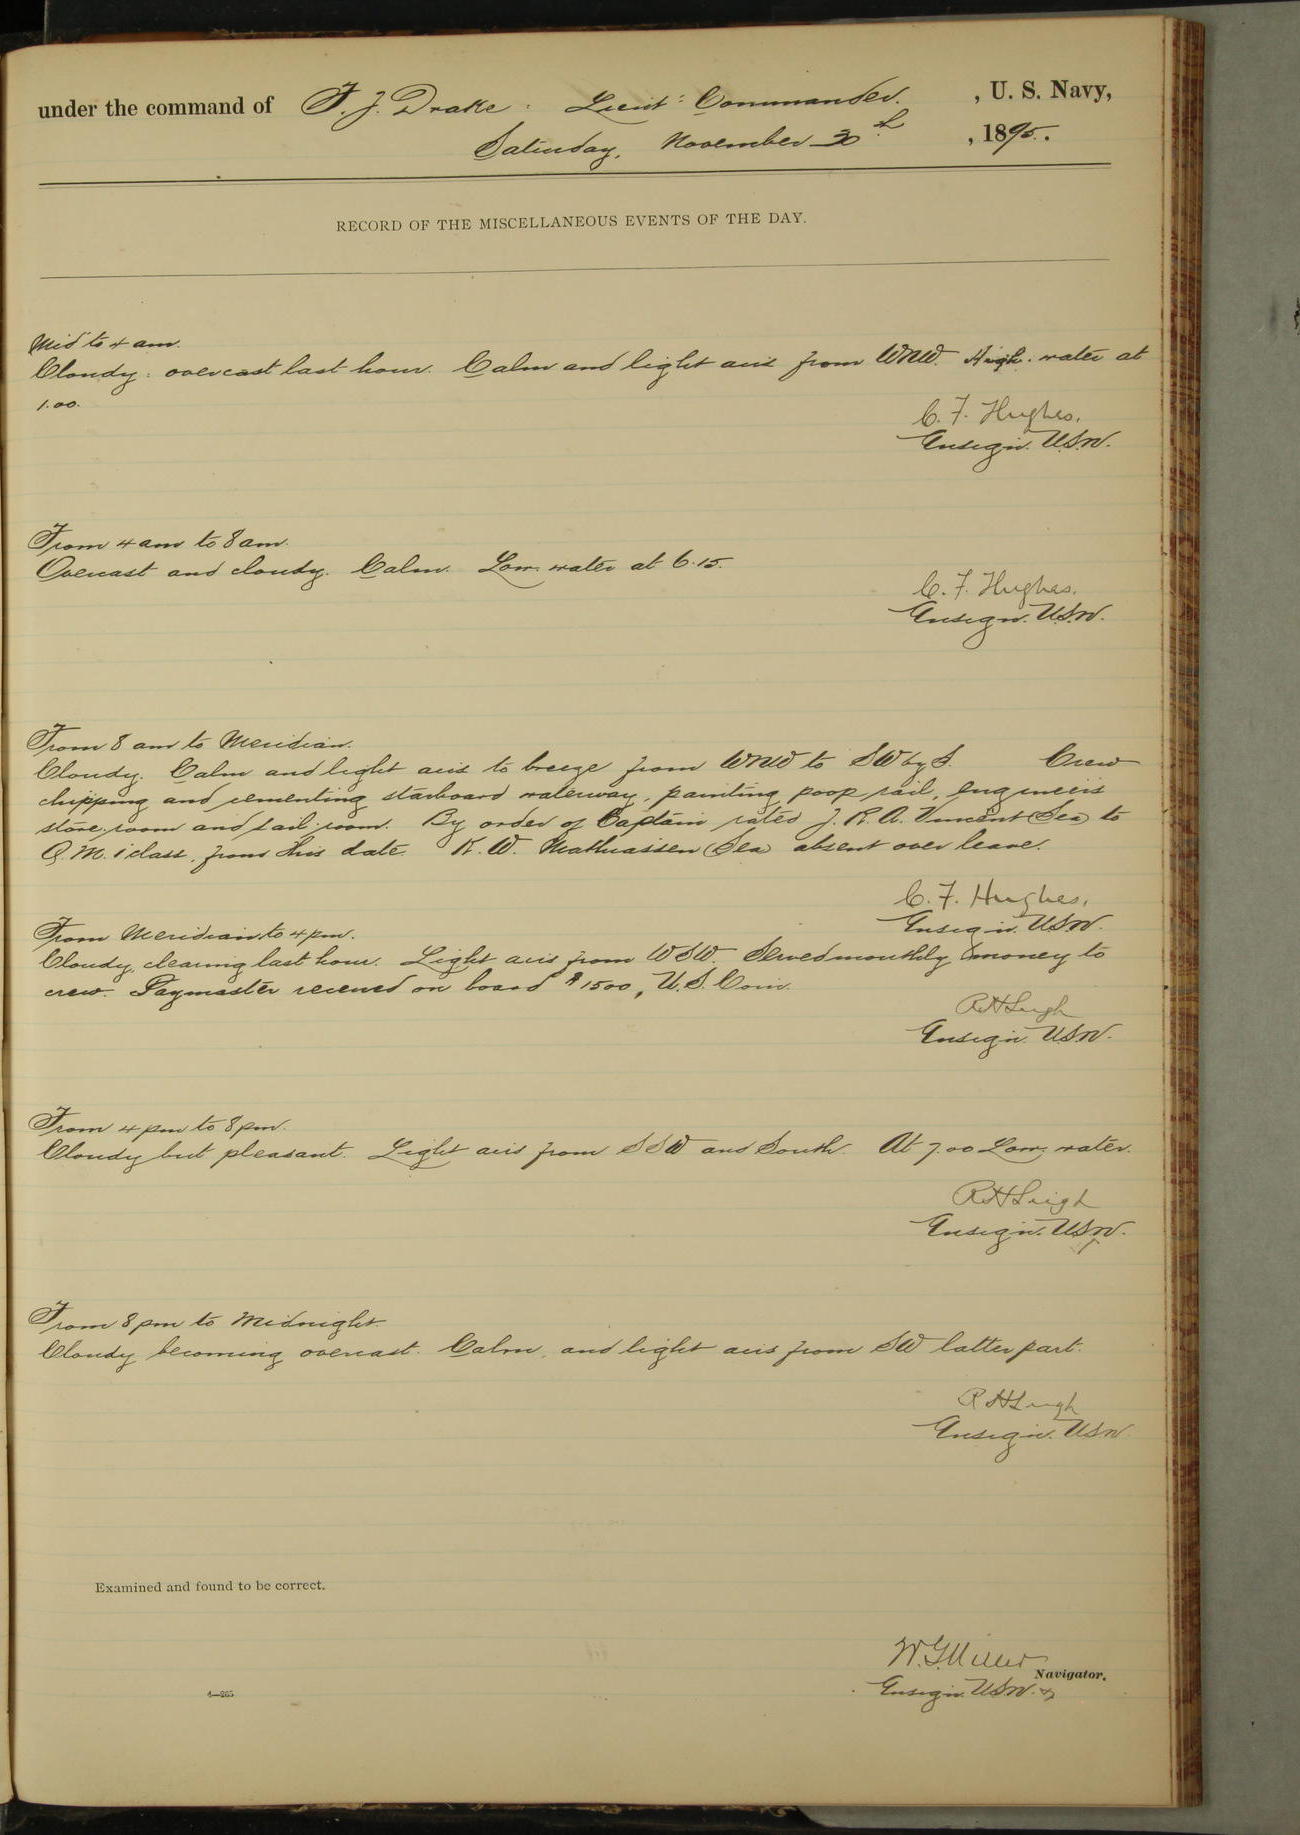 under the command of F. J. Drake. Lieut: Commander. , U. S. Navy,
Saturday, November 30th , 1895.
RECORD OF THE MISCELLANEOUS EVENTS OF THE DAY.
Mid to 4 am.
Cloudy: overcast last hour. Calm and light airs from WNW. High water at
1.00.
C. F. Hughes.
Ensign. U.S.N.
From 4 am to 8 am.
Overcast and cloudy. Calm. Low water at 6.15.
C. F. Hughes.
Ensign. U.S.N.
From 8 am to Meridian.
Cloudy. Calm and light airs to breeze from WNW to SW by S. Crew
chipping and cementing starboard waterway, painting poop rail, engineers
store room and sail room. By order of Captain, rated J. R. A. Vincent (Sea) to
Q.M. 1 class, from this date. K. W. Mathiassen (Sea) absent over leave.
C. F. Hughes.
Ensign. USN.
From Meridian to 4 pm.
Cloudy, clearing last hour. Light airs from WSW. Served monthly money to
crew. Paymaster received on board $1500, U.S. Coin.
R H Leigh
Ensign. U.S.N.
From 4 pm to 8 pm.
Cloudy but pleasant. Light airs from SSW and South. At 7.00 Low water.
R H Leigh
Ensign. USN.
From 8 pm to Midnight.
Cloudy becoming overcast. Calm, and light airs from SW latter part.
R H Leigh
Ensign. USN
Examined and found to be correct.
W. G. Miller
Navigator.
Ensign. USN. &
4—265